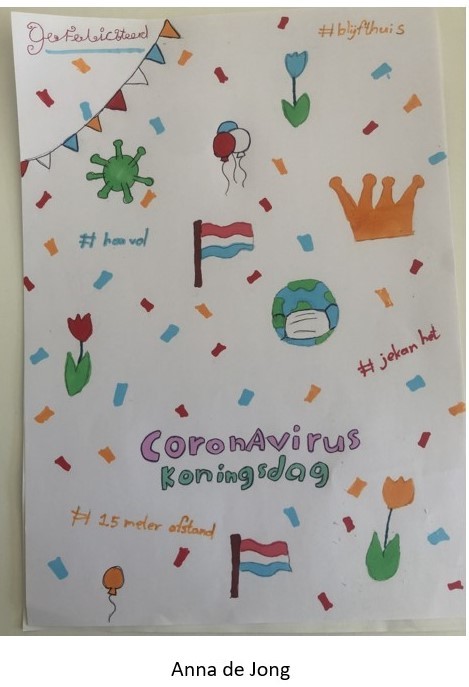 Gefeliciteerd
#blijfthuis
# hou vol
# jekan het
CoronAvirus
Koningsdag
# 1.5 meter afstand
Anna de Jong